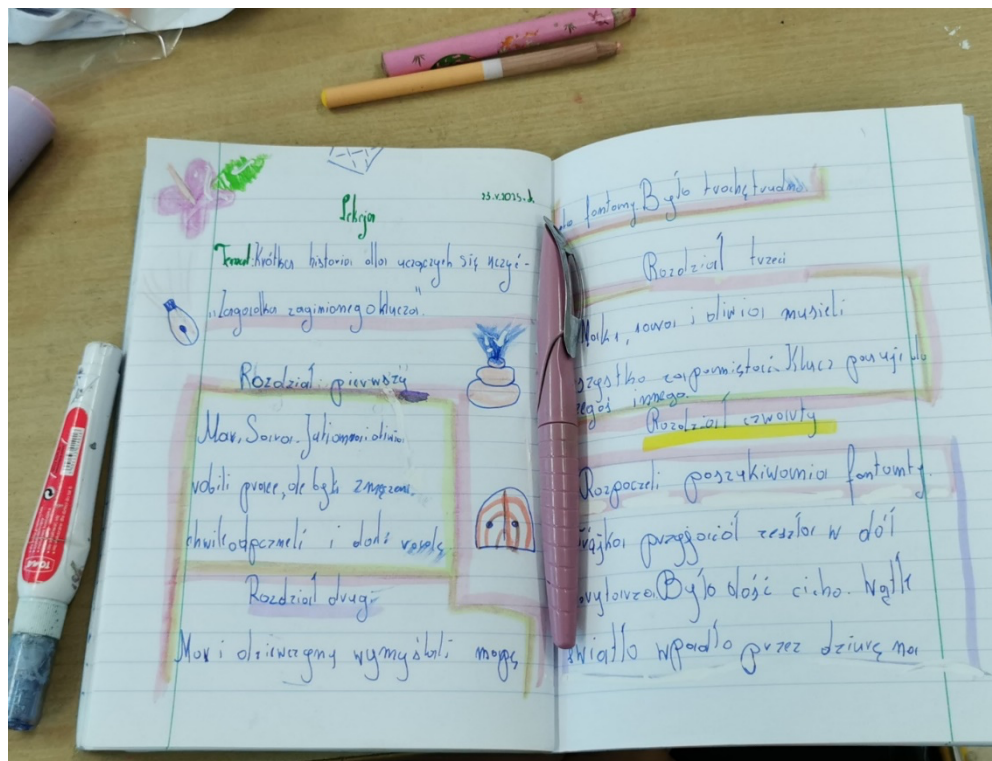 Lekcja
23.V.2025.r.
Temat: Krótka historia dla uczących się uczyć-
"Zagadka zaginionego klucza".
Rozdział pierwszy
Max, Sara, Julianna i oliwia
robili prace, ale byli zmęczeni.
chwile odpoczneli i dali
Rozdział drugi
Max i dziewczyny wymyślili mapę
do fontanny. Było trochę trudno.
Rozdział trzeci
sara i oliwia musieli
wszystko zapamiętać. Klucz pasuje do
czegoś innego.
Rozdział czwarty
Rozpoczeli poszykiwania fontanty.
trójka przyjaciół zeszła w dół
korytarza. Było dość cicho. Wątłe
światło wpadło przez dziurę na
TOMA